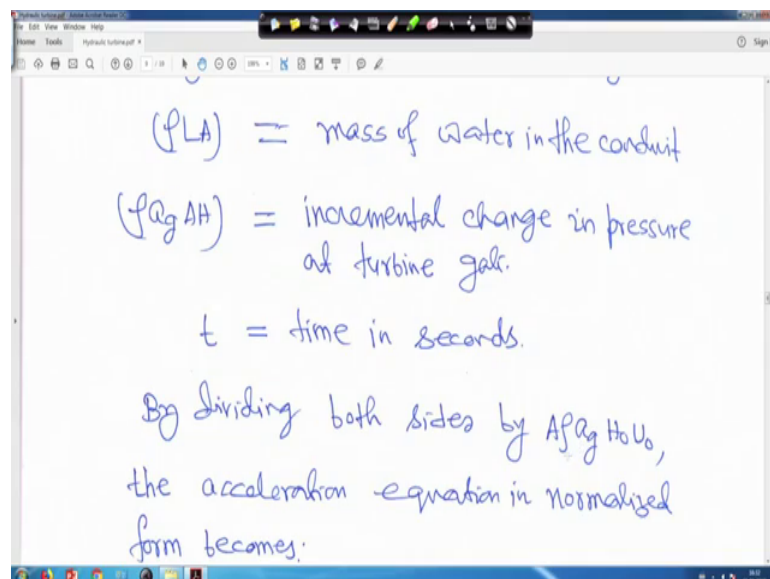 Hydraulic turbine.pdf - Adobe Acrobat Reader DC
File Edit View Window Help
Home Tools Hydraulic turbine.pdf ×
Sign
(ρLA) = mass of water in the conduit
(ρagΔH) = incremental change in pressure
at turbine gate.
t = time in seconds.
By dividing both sides by Aρag H₀U₀,
the acceleration equation in normalized
form becomes: